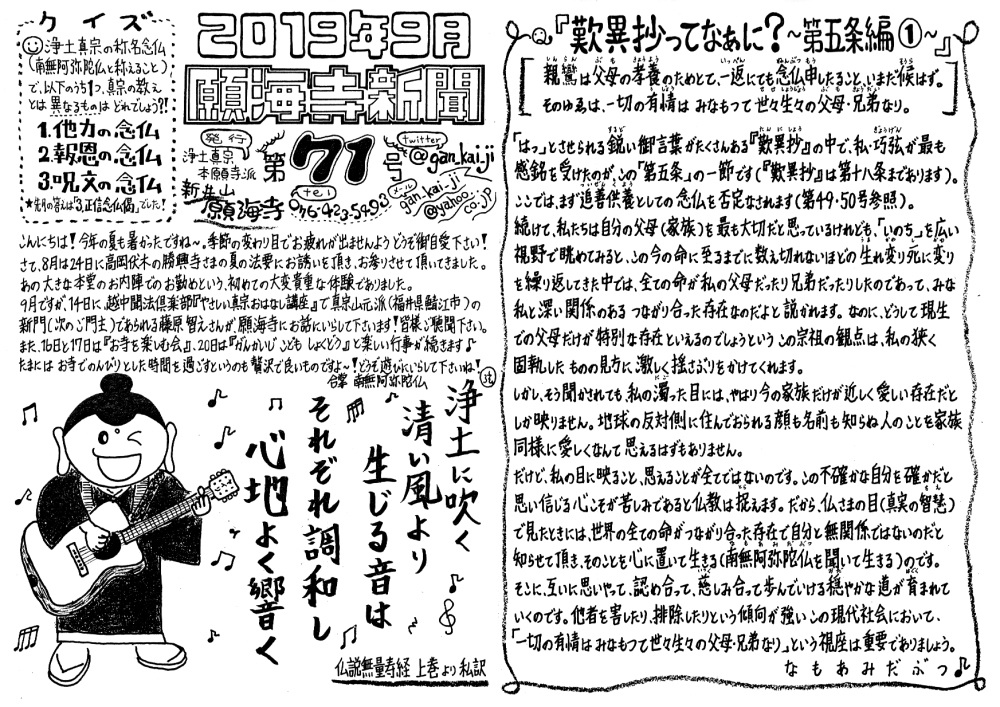 クイズ
浄土真宗の称名念仏
(南無阿弥陀仏と称えること)
で、以下のうち1つ、真宗の教え
とは異なるものはどれでしょう?!
1.他力の念仏
2.報恩の念仏
3.呪文の念仏
★先月の答えは「3,正信念仏偈」でした!
2019年9月
願海寺新聞
発行
浄土真宗
本願寺派
新井山
願海寺
第71号
tel
076-423-5493
twitter
@gan_kai_ji
メール
gan_kai_ji
@yahoo.co.jp
こんにちは!今年の夏も暑かったですね〜。季節の変わり目でお疲れが出ませんようどうぞ御自愛下さい!
さて、8月は24日に高岡伏木の勝興寺さまの夏の法要にお誘いを頂き、お参りさせて頂いてきました。
あの大きな本堂のお内陣でのお勤めという、初めての大変貴重な体験でありました。
9月ですが、14日に、越中聞法倶楽部『やさしい真宗おはなし講座』で真宗山元派(福井県鯖江市)の
新門(次のご門主)であられる藤原智えさんが、願海寺にお話にいらして下さいます!皆様ご聴聞下さい。
また、16日と17日は『お寺を楽しむ会』、20日は『がんかいじこどもしょくどう』と楽しい行事が続きます♪
たまにはお寺でのんびりとした時間を過ごすというのも贅沢で良いものですよ〜!どうぞ遊びにいらして下さいね!
合掌 南無阿弥陀仏
浄土に吹く
清い風より
生じる音は
それぞれ調和し
心地よく響く
仏説無量寿経 上巻より私訳
『歎異抄ってなぁに?〜第五条編①〜』
親鸞は父母の孝養のためとて、一返にても念仏申したること、いまだ候はず。
そのゆゑは、一切の有情はみなもつて世々生々の父母・兄弟なり。
「はっ」とさせられる鋭い御言葉がたくさんある『歎異抄』の中で、私・巧弦が最も
感銘を受けたのが、この「第五条」の一節です(『歎異抄』は第十八条まであります)。
ここでは、まず追善供養としての念仏を否定なされます(第49・50号参照)。
続けて、私たちは自分の父母(家族)を最も大切だと思っているけれども、「いのち」を広い
視野で眺めてみると、この今の命に至るまでに数え切れないほどの生れ変り死に変り
を繰り返してきた中では、全ての命が私の父母だったり兄弟だったりしたのであって、みな
私と深い関係のあるつながり合った存在なのだよと説かれます。なのに、どうして現生
での父母だけが特別な存在といえるのでしょうというこの宗祖の観点は、私の狭く
固執したものの見方に激しく揺さぶりをかけてくれます。
しかし、そう聞かされても、私の濁った目には、やはり今の家族だけが近しく愛しい存在だと
しか映りません。地球の反対側に住んでおられる顔も名前も知らぬ人のことを家族
同様に愛しくなんて思えるはずもありません。
だけど、私の目に映ること、思えることが全てではないのです。この不確かな自分を確かだと
思い信じる心こそが苦しみであると仏教は捉えます。だから、仏さまの目(真実の智慧)
で見たときには、世界の全ての命がつながり合った存在で自分と無関係ではないのだと
知らせて頂き、そのことを心に置いて生きる(南無阿弥陀仏を聞いて生きる)のです。
そこに、互いに思いやって、認め合って、慈しみ合って歩んでいける穏やかな道が育まれて
いくのです。他者を害したり、排除したりという傾向が強いこの現代社会において、
「一切の有情はみなもつて世々生々の父母・兄弟なり」という視座は重要でありましょう。
なもあみだぶつ♪